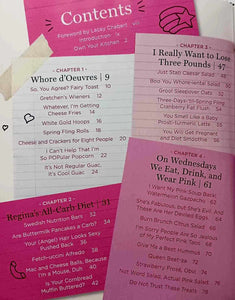 Contents
Foreword by Lacey Chabert
Introduction
Own Your Kitchen
• CHAPTER 1 •
Whore d'Oeuvres | 9
So, You Agree? Fairy Toast 10
Gretchen's Wieners 12
Whatever, I'm Getting
Cheese Fries 14
White Gold Hoops 16
Spring Fling Rolls
Cheese and Crackers for Eight People 20
I Can't Help That I'm
So POPular Popcorn 22
It's Not Regular Guac,
It's Cool Guac 24
• CHAPTER 2 •
Regina's All-Carb Diet | 31
Swedish Nutrition Bars 32
Are Buttermilk Pancakes a Carb? 34
Your (Angel) Hair Looks Sexy
Pushed Back
Fetch-uccini Alfredo 38
Mac and Cheese Balls, Because
I'm a Mouse, Duh
Is Your Cornbread
Muffin Buttered? 42
• CHAPTER 3 •
I Really Want to Lose
Three Pounds | 47
Just Stab Caesar Salad 48
Boo You Whore-mental Salad
Grool Sleepover Oats 52
Three-Days-'til-Spring Fling
Cranberry Flat Flush 54
You Smell Like a Baby
Prosti-tunnnini Latte
You Will Get Pregnant
and Diet Smoothie
• CHAPTER 4 •
On Wednesdays
We Eat, Drink, and
Wear Pink | 61
I Want My Pink Soup Back
Watermelon Gazpacho 62
She's Fabulous, but She's Evil
These Are Her Deviled Eggs
Burn Brunch Citrus Salad
I'm Sorry People Are So Jealous
of Me
Give Me a Beet Hummus
Queen Beet-za
Strawberry, Froyo, Obvi
Not Word Salad, Actual Pink Salad 76
Do Not Trust These Treats